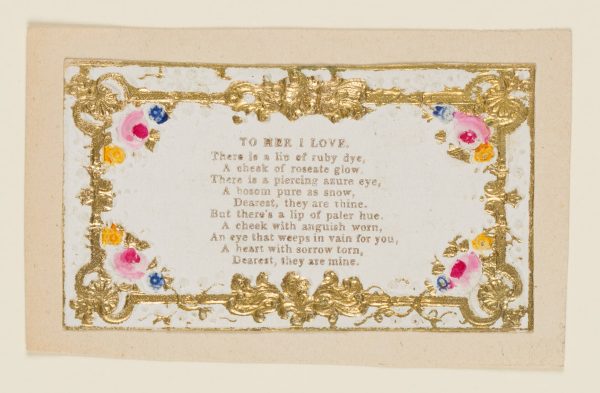 TO HER I LOVE.
There is a lip of ruby dye,
A cheek of roseate glow.
There is a piercing azure eye,
A bosom pure as snow,
Dearest, they are thine.
But there's a lip of paler hue.
A cheek with anguish worn,
An eye that weeps in vain for you,
A heart with sorrow torn,
Dearest, they are mine.